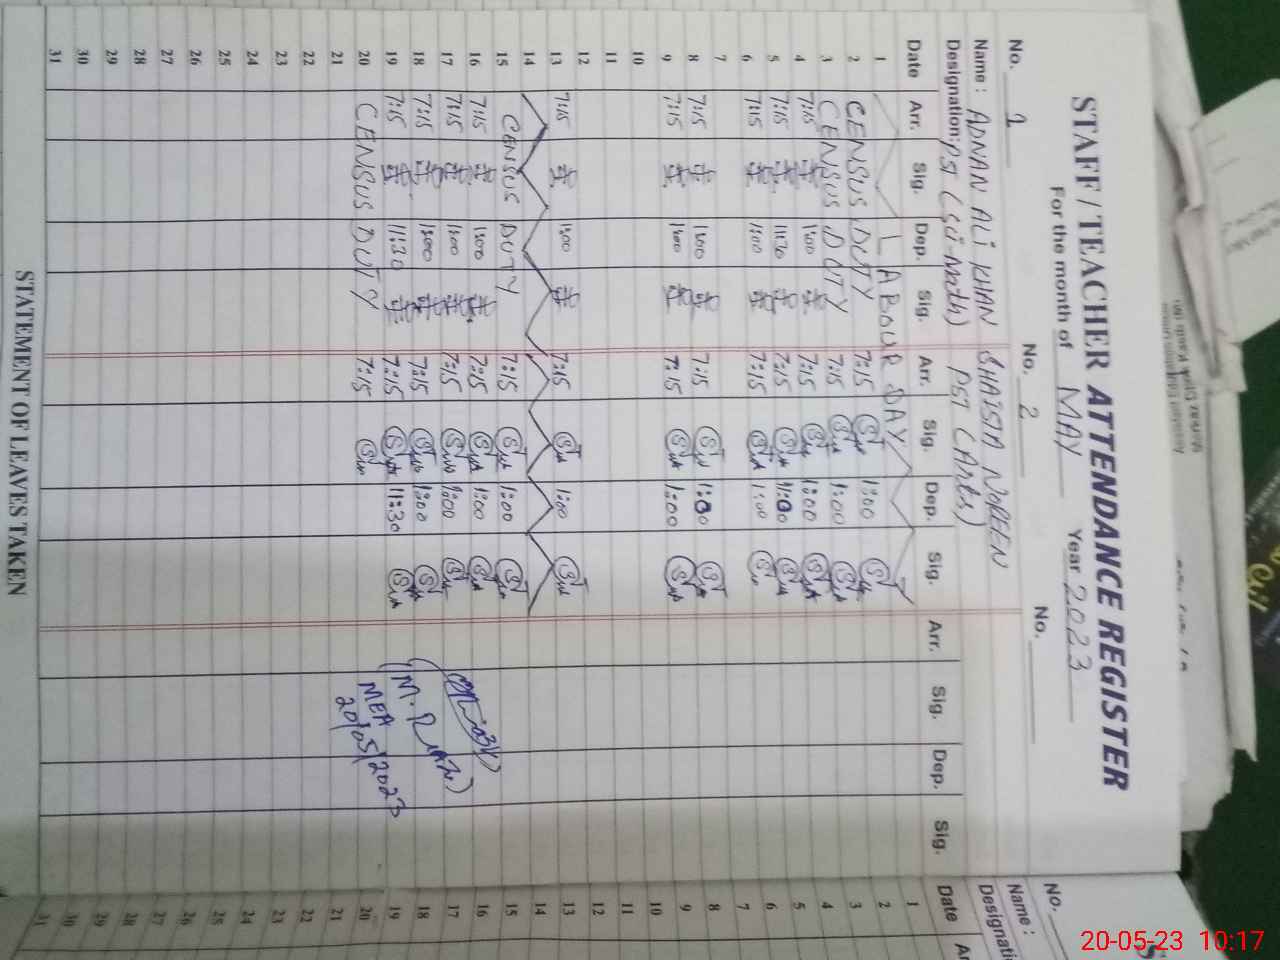 STAFF / TEACHER ATTENDANCE REGISTER
For the month of MAY Year 2023
No. 1 No. 2 No.
Name : ADNAN ALI KHAN SHAISTA NOREEN
Designation: PST (Sci-Math) PST (Arts)
Date Arr. Sig. Dep. Sig. Arr. Sig. Dep. Sig. Arr. Sig. Dep. Sig.
1 LABOUR DAY
2 CENSUS DUTY 7:15 1:00
3 CENSUS DUTY 7:15 1:00
4 7:15 1:00 7:15 1:00
5 7:15 11:30 7:15 1:00
6 7:15 1:00 7:15 1:00
7
8 7:15 1:00 7:15 1:00
9 7:15 1:00 7:15 1:00
10
11
12
13 7:15 1:00 7:15 1:00
14
15 CENSUS DUTY 7:15 1:00
16 7:15 1:00 7:15 1:00
17 7:15 1:00 7:15 1:00
18 7:15 1:00 7:15 1:00
19 7:15 11:30 7:15 11:30
20 CENSUS DUTY 7:15
21
22
23
24
25
26
27
28
29
30
31
(M. Riaz)
MEA
20/05/2023
STATEMENT OF LEAVES TAKEN
No.
Name :
Date
1
2
3
4
5
6
7
8
9
10
11
12
13
14
15
16
17
18
19
20
21
22
23
24
25
26
27
28
29
30
31
20-05-23 10:17